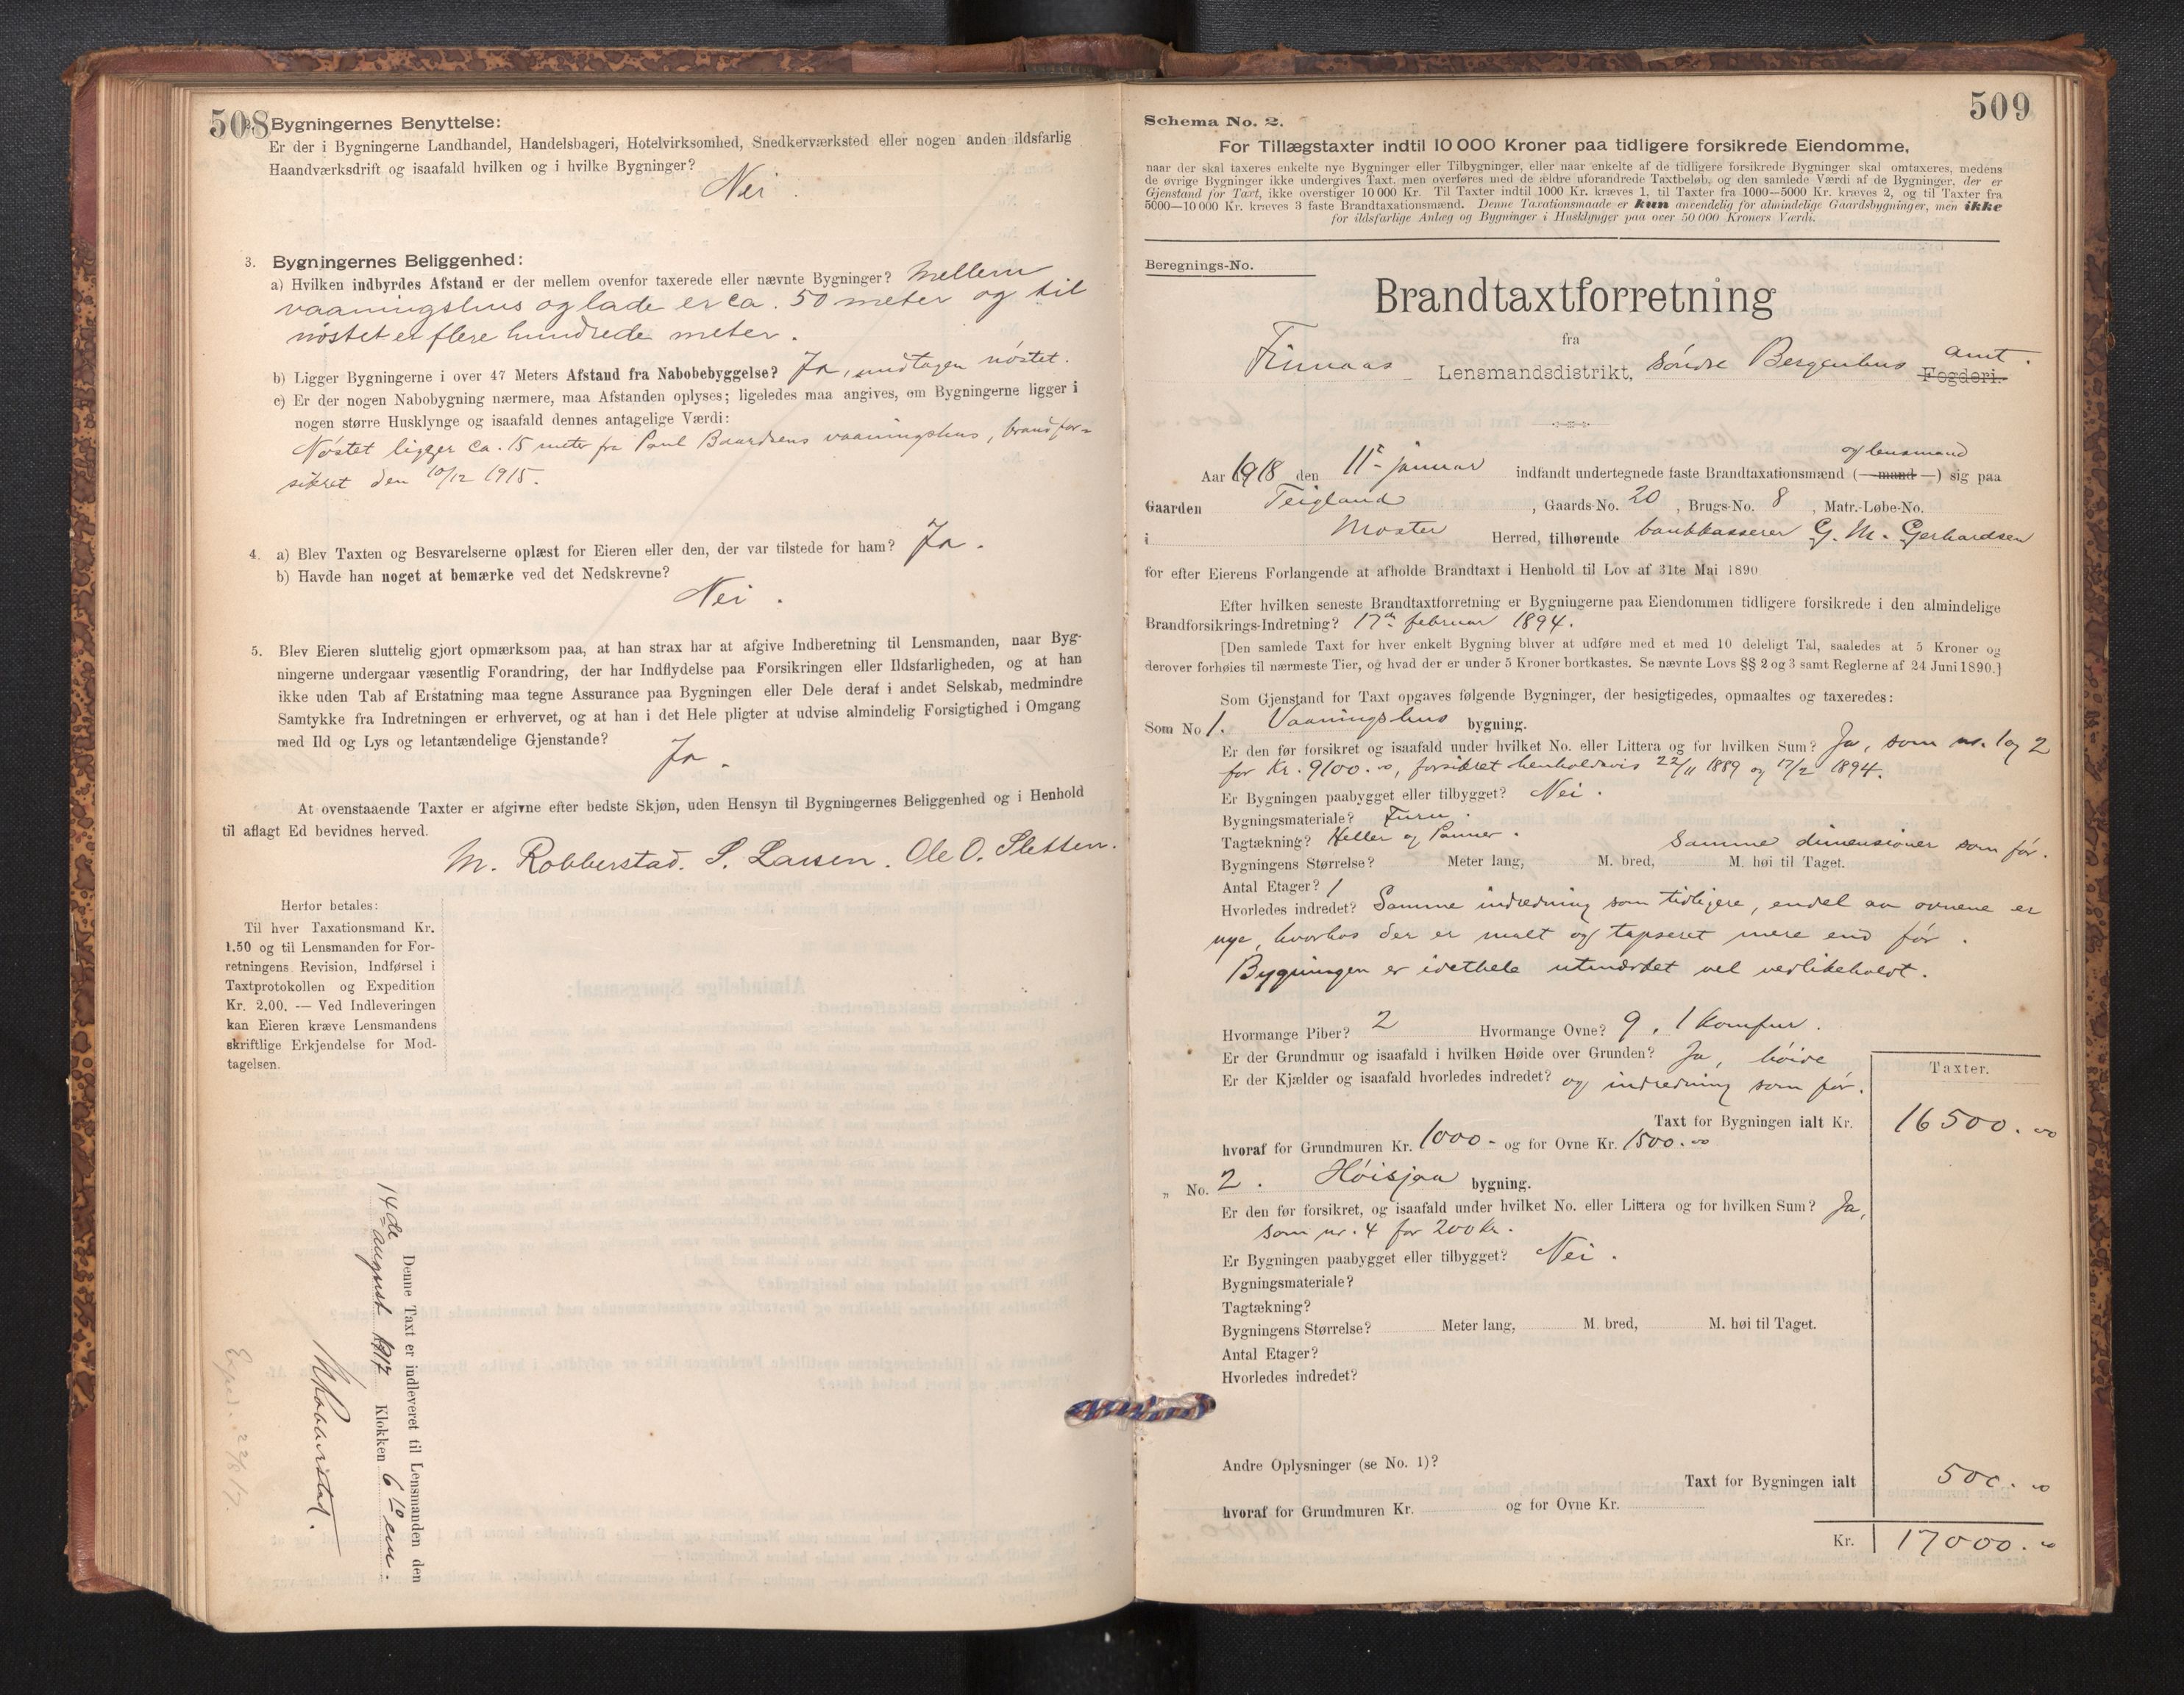 508
Bygningernes Benyttelse:
Er der i Bygningerne Landhandel, Handelsbageri, Hotelvirksomhed, Snedkerværksted eller nogen anden ildsfarlig
Haandværksdrift og isaafald hvilken og i hvilke Bygninger?
Nei
3. Bygningernes Beliggenhed:
a) Hvilken indbyrdes Afstand er der mellem ovenfor taxerede eller nævnte Bygninger? Mellem
vaaningshus og lade er ca. 50 meter og til
nøstet er flere hundrede meter.
b) Ligger Bygningerne i over 47 Meters Afstand fra Nabobebyggelse? Ja, undtagen nøstet.
c) Er der nogen Nabobygning nærmere, maa Afstanden oplyses; ligeledes maa angives, om Bygningerne ligger i
nogen større Husklynge og isaafald dennes antagelige Værdi:
Nøstet ligger ca. 15 meter fra Paul Baardsens vaaningshus, brandfor-
sikret den 10/12 1915.
4. a) Blev Taxten og Besvarelserne oplæst for Eieren eller den, der var tilstede for ham? Ja.
b) Havde han noget at bemærke ved det Nedskrevne?
Nei.
5. Blev Eieren sluttelig gjort opmærksom paa, at han strax har at afgive Indberetning til Lensmanden, naar Byg-
ningerne undergaar væsentlig Forandring, der har Indflydelse paa Forsikringen eller Ildsfarligheden, og at han
ikke uden Tab af Erstatning maa tegne Assurance paa Bygningen eller Dele deraf i andet Selskab, medmindre
Samtykke fra Indretningen er erhvervet, og at han i det Hele pligter at udvise almindelig Forsigtighed i Omgang
med Ild og Lys og letantændelige Gjenstande?
Ja.
At ovenstaaende Taxter er afgivne efter bedste Skjøn, uden Hensyn til Bygningernes Beliggenhed og i Henhold
til aflagt Ed bevidnes herved.
M. Robberstad. S. Larsen. Ole O. Sletten.
Herfor betales:
Til hver Taxationsmand Kr.
1.50 og til Lensmanden for For-
retningens Revision, Indførsel i
Taxtprotokollen og Expedition
Kr. 2.00. — Ved Indleveringen
kan Eieren kræve Lensmandens
skriftlige Erkjendelse for Mod-
tagelsen.
Denne Taxt er indleveret til Lensmanden den
14de august 1917 Klokken 6 10 em.
Exped. 22/8 17.
509
Schema No. 2.
For Tillægstaxter indtil 10 000 Kroner paa tidligere forsikrede Eiendomme,
naar der skal taxeres enkelte nye Bygninger eller Tilbygninger, eller naar enkelte af de tidligere forsikrede Bygninger skal omtaxeres, medens
de øvrige Bygninger ikke undergives Taxt, men overføres med de ældre uforandrede Taxtbeløb, og den samlede Værdi af de Bygninger, der er
Gjenstand for Taxt, ikke overstiger 10 000 Kr. Til Taxter indtil 1000 Kr. kræves 1, til Taxter fra 1000—5000 Kr. kræves 2, og til Taxter fra
5000—10 000 Kr. kræves 3 faste Brandtaxationsmænd. Denne Taxationsmaade er kun anvendelig for almindelige Gaardsbygninger, men ikke
for ildsfarlige Anlæg og Bygninger i Husklynger paa over 50 000 Kroners Værdi.
Beregnings-No.
Brandtaxtforretning
fra
Finnaas Lensmandsdistrikt, søndre Bergenhus amt. Fogderi.
Aar 1918 den 11te januar indfandt undertegnede faste Brandtaxationsmænd (—mand—) og lensmand sig paa
Gaarden Teigland, Gaards-No. 20, Brugs-No. 8, Matr.-Løbe-No.
i Moster Herred, tilhørende bankkasserer G. M. Gerhardsen
for efter Eierens Forlangende at afholde Brandtaxt i Henhold til Lov af 31te Mai 1890.
Efter hvilken seneste Brandtaxtforretning er Bygningerne paa Eiendommen tidligere forsikrede i den almindelige
Brandforsikrings-Indretning? 17de februar 1894.
[Den samlede Taxt for hver enkelt Bygning bliver at udføre med et med 10 deleligt Tal, saaledes at 5 Kroner og
derover forhøies til nærmeste Tier, og hvad der er under 5 Kroner bortkastes. Se nævnte Lovs §§ 2 og 3 samt Reglerne af 24 Juni 1890.]
Som Gjenstand for Taxt opgaves følgende Bygninger, der besigtigedes, opmaaltes og taxeredes:
Som No 1. Vaaningshus bygning.
Er den før forsikret og isaafald under hvilket No. eller Littera og for hvilken Sum? Ja, som nr. 1 og 2
for Kr. 9100.00, forsikret henholdsvis 22/11 1889 og 17/2 1894.
Er Bygningen paabygget eller tilbygget? Nei.
Bygningsmateriale? Furu.
Tagtækning? Heller og Panner. Samme dimensioner som før.
Bygningens Størrelse? Meter lang, M. bred, M. høi til Taget.
Antal Etager? 1
Hvorledes indredet? Samme indredning som tidligere, endel av ovnene er
nye, hvorhos der er malt og tapseret mere end før.
Bygningen er idethele utmerket vel vedlikeholdt.
Hvormange Piber? 2 Hvormange Ovne? 9, 1 komfur.
Er der Grundmur og isaafald i hvilken Høide over Grunden? Ja, høide
Er der Kjælder og isaafald hvorledes indredet? og indredning som før.
Taxter.
Taxt for Bygningen ialt Kr. 16500.00
hvoraf for Grundmuren Kr. 1000- og for Ovne Kr. 1500.00
„ No. 2. Høisjaa bygning.
Er den før forsikret, og isaafald under hvilket No. eller Littera og for hvilken Sum? Ja,
som nr. 4 for 200 kr.
Er Bygningen paabygget eller tilbygget? Nei.
Bygningsmateriale?
Tagtækning?
Bygningens Størrelse? Meter lang, M. bred, M. høi til Taget.
Antal Etager?
Hvorledes indredet?
Andre Oplysninger (se No. 1)?
Taxt for Bygningen ialt 500.00
hvoraf for Grundmuren Kr. og for Ovne Kr.
Kr. 17000.00